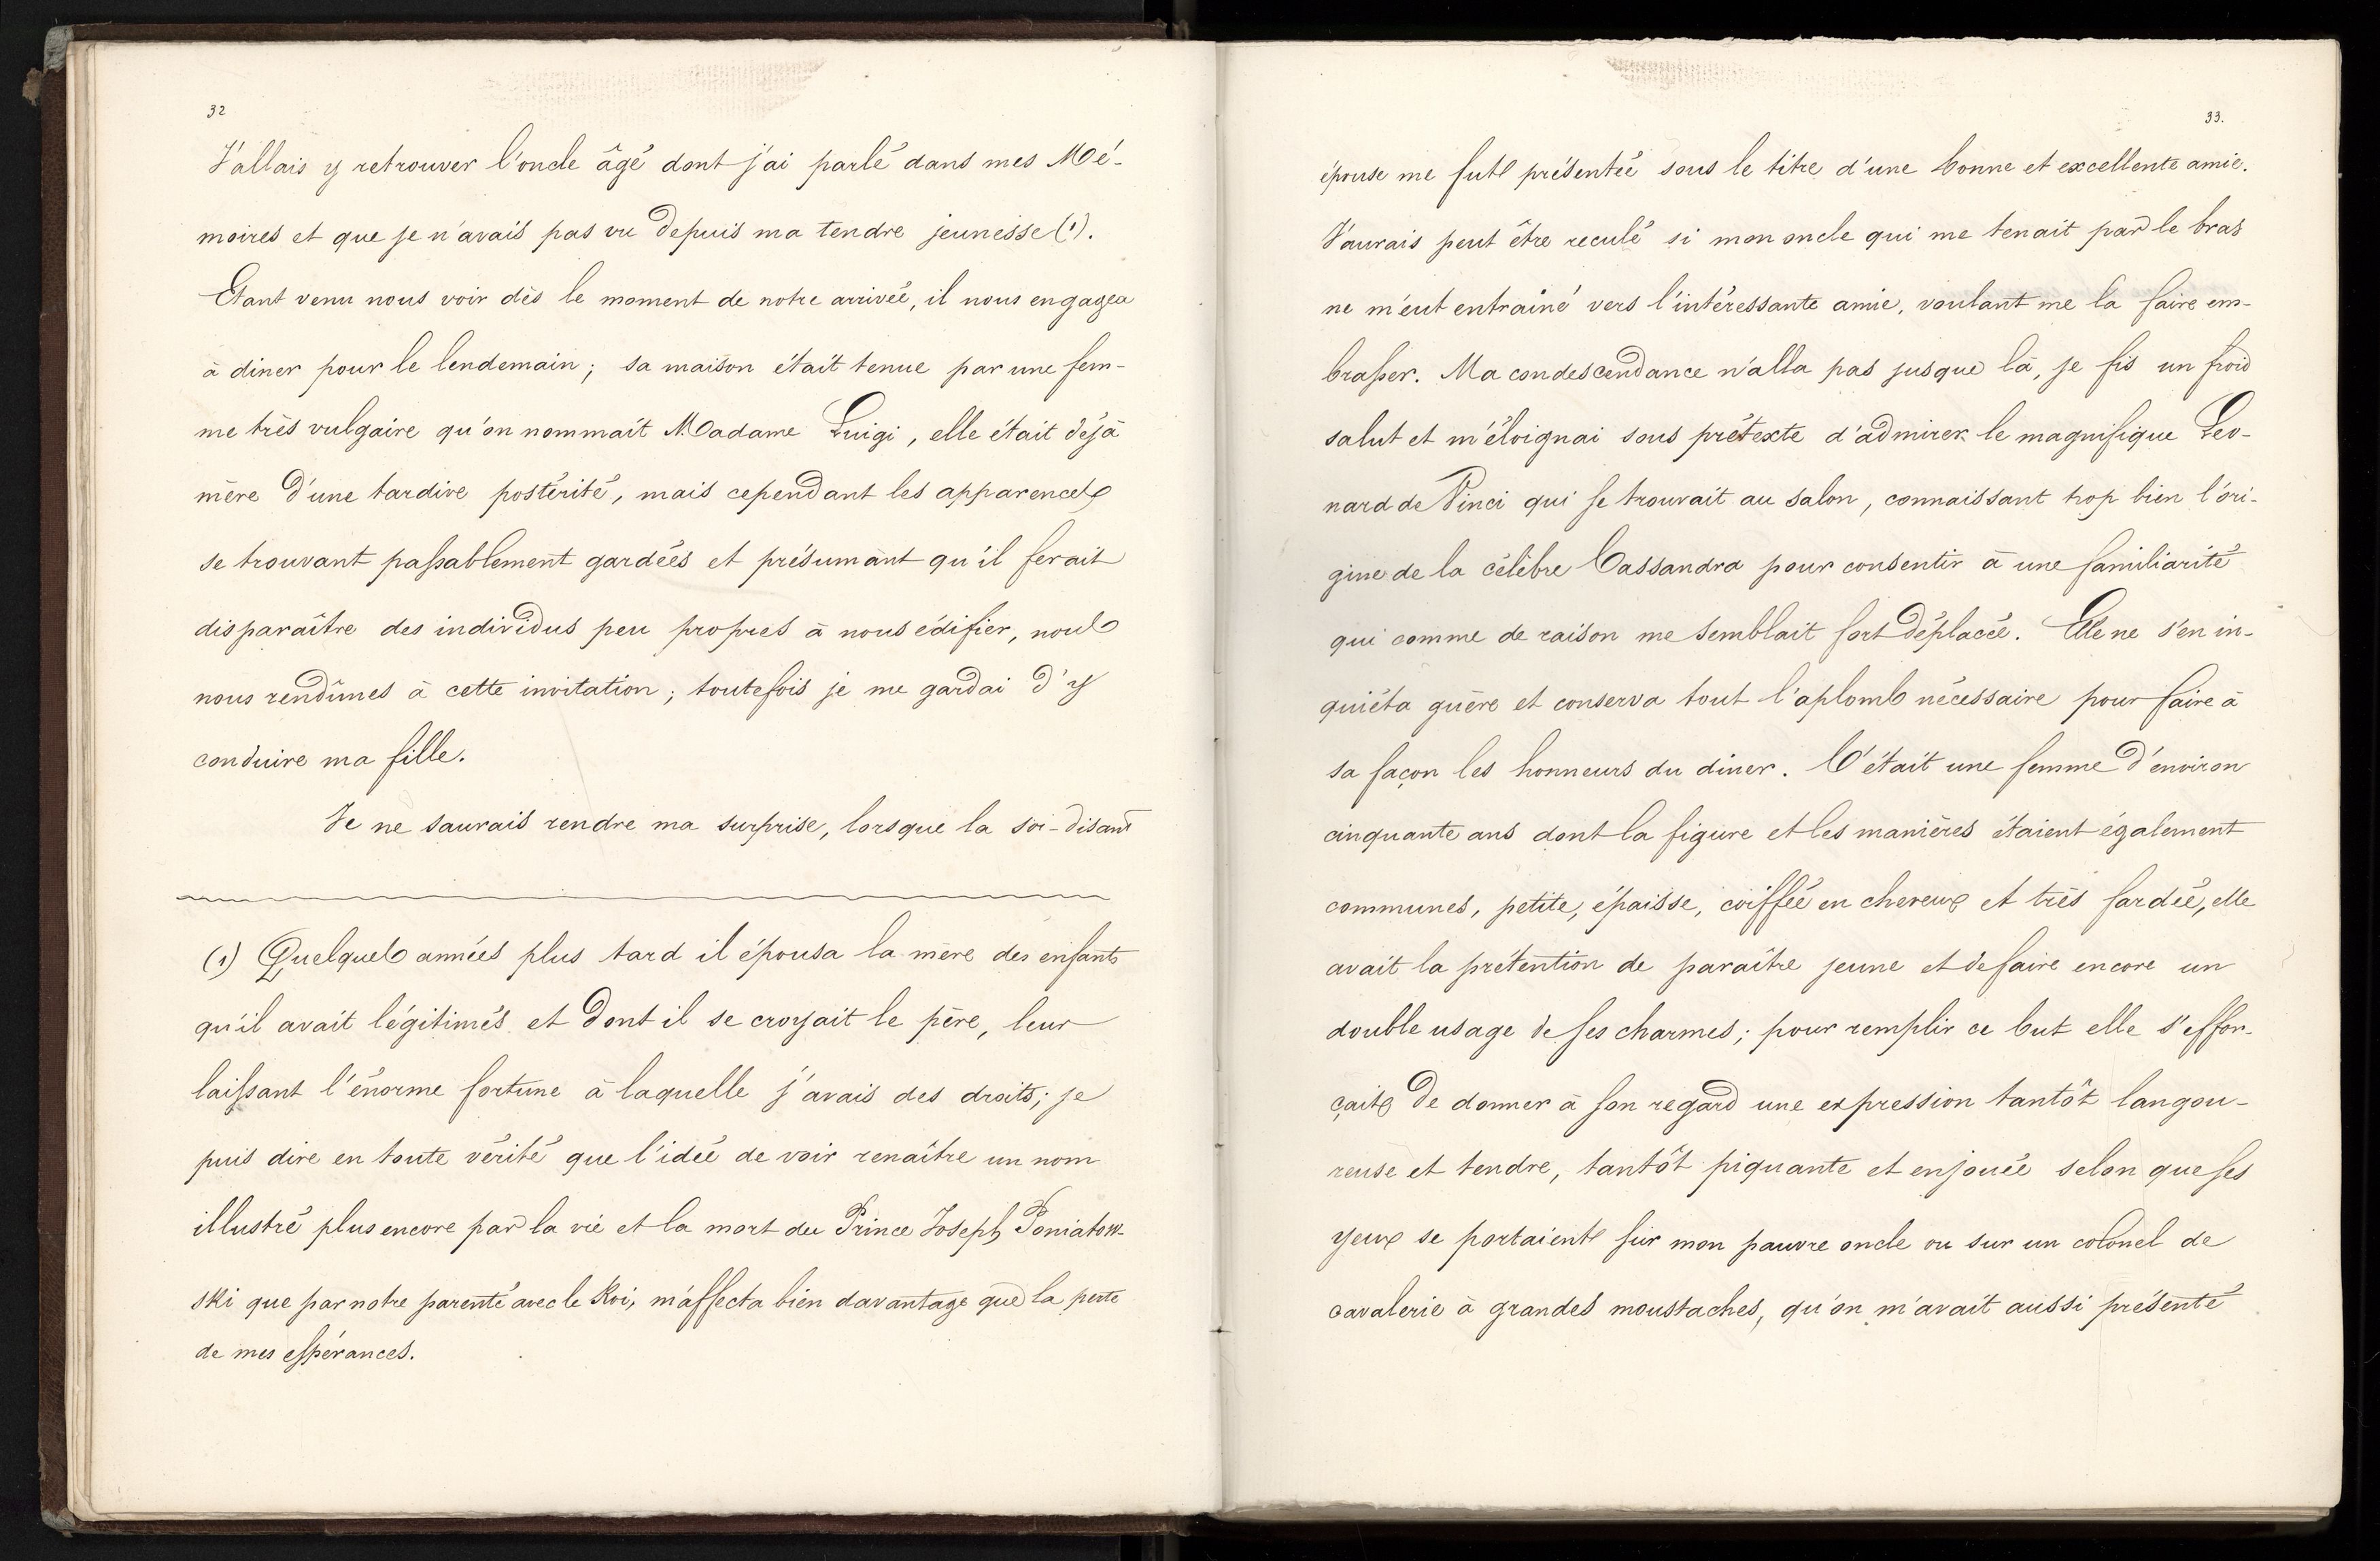 32
J'allais y retrouver l'oncle âgé dont j'ai parlé dans mes Mé-
moires et que je n'avais pas vu depuis ma tendre jeunesse (1).
Etant venu nous voir dès le moment de notre arrivée, il nous engagea
à diner pour le lendemain; sa maison était tenue par une fem-
me très vulgaire qu'on nommait Madame Luigi, elle était déjà
mère d'une tardive postérité, mais cependant les apparences
se trouvant passablement gardées et présumant qu'il ferait
disparaître des individus peu propres à nous édifier, nous
nous rendîmes à cette invitation; toutefois je me gardai d'y
conduire ma fille.
Je ne saurais rendre ma surprise, lorsque la soi-disant
(1) Quelques années plus tard il épousa la mère des enfants
qu'il avait légitimés et dont il se croyait le père, leur
laissant l'énorme fortune à laquelle j'avais des droits; je
puis dire en toute vérité que l'idée de voir renaître un nom
illustré plus encore par la vie et la mort du Prince Joseph Poniatow-
ski que par notre parenté avec le Roi, m'affecta bien davantage que la perte
de mes espérances.
33.
épouse me fut présentée sous le titre d'une bonne et excellente amie.
J'aurais peut être reculé si mon oncle qui me tenait par le bras
ne m'eut entraîné vers l'intéressante amie, voulant me la faire em-
brasser. Ma condescendance n'alla pas jusque là, je fis un froid
salut et m'éloignai sous prétexte d'admirer le magnifique Leo-
nard de Vinci qui se trouvait au salon, connaissant trop bien l'ori-
gine de la célèbre Cassandra pour consentir à une familiarité
qui comme de raison me semblait fort déplacée. Elle ne s'en in-
quiéta guère et conserva tout l'aplomb nécessaire pour faire à
sa façon les honneurs du diner. C'était une femme d'environ
cinquante ans dont la figure et les manières étaient également
communes, petite, épaisse, coiffée en cheveux et très fardée, elle
avait la prétention de paraître jeune et de faire encore un
double usage de ses charmes; pour remplir ce but elle s'effor-
çait de donner à son regard une expression tantôt langou-
reuse et tendre, tantôt piquante et enjouée selon que ses
yeux se portaient sur mon pauvre oncle ou sur un colonel de
cavalerie à grandes moustaches, qu'on m'avait aussi présenté